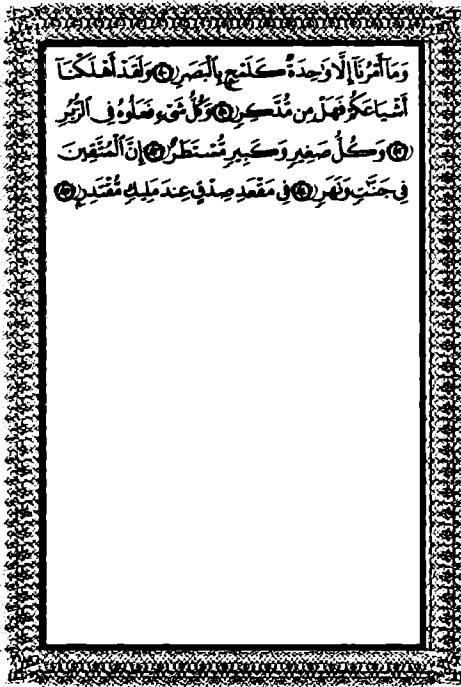 وَمَآ أَمْرُنَآ إِلَّا وَٰحِدَةٌ كَلَمْحٍۭ بِٱلْبَصَرِ ﴿٥٠﴾ وَلَقَدْ أَهْلَكْنَآ
أَشْيَاعَكُمْ فَهَلْ مِن مُّدَّكِرٍ ﴿٥١﴾ وَكُلُّ شَىْءٍ فَعَلُوهُ فِى ٱلزُّبُرِ
﴿٥٢﴾ وَكُلُّ صَغِيرٍ وَكَبِيرٍ مُّسْتَطَرٌ ﴿٥٣﴾ إِنَّ ٱلْمُتَّقِينَ
فِى جَنَّٰتٍ وَنَهَرٍ ﴿٥٤﴾ فِى مَقْعَدِ صِدْقٍ عِندَ مَلِيكٍ مُّقْتَدِرٍۭ ﴿٥٥﴾